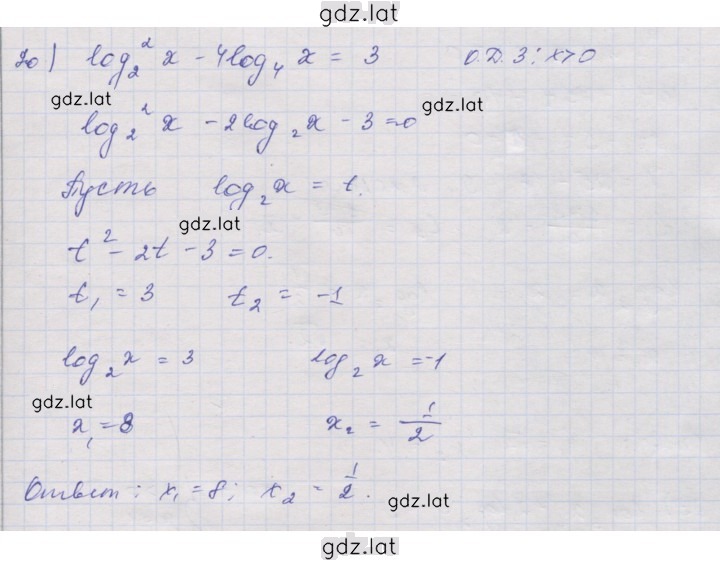 gdz.lat
20) log₂² x - 4log₄ x = 3 О.Д.З: x>0
gdz.lat
gdz.lat
log₂² x - 2log₂x - 3 = 0
Пусть log₂x = t.
gdz.lat
t² - 2t - 3 = 0.
t₁ = 3 t₂ = -1
log₂x = 3 log₂ x = -1
gdz.lat
x₁ = 8 x₂ = 1/2
Ответ: x₁ = 8; x₂ = 1/2.
gdz.lat
gdz.lat